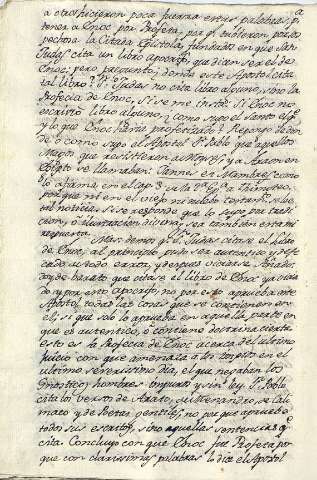 a otros hicieron poca fuerza estas palabras, p.ª
tener a Enoc por Profeta, por q.e tuvieron por sos
pechosa la Citada Epistola, fundados en que San
Judas cita un libro apocrifo, que dicen ser el de
Enoc: pero pregunto: donde este Apostol cita
tal libro? S.n Judas no cita libro alguno, sino la
Profecia de Enoc, si se me insta: si Enoc no
escrivio libro alguno, como supo el Santo
y lo que Enoc havia profetizado? Respondo
de como supo el Apostol S.n Pablo que aquellos
Magos que resistieron a Moyses, y a Aaron en
Egipto se llamaban Jannes et Mambres, como
lo afirma en el cap. 3 a la 2.ª Ep.ª a Thimoteo,
porque ni en el viejo
tal noticia: si se responde que lo supo por tradi
cion, o iluminacion divina, sea tambien esta mi
respuesta.
Mas: demos que S.n Judas citase el libro
de Enoc, al principio pudo ser autentico y
cado
y por esto apocrifo, no por eso aprueba
Apostol todas las cosas que se contienen en
el; si que solo lo aprueba en aquella parte en
que es autentico, o contiene doctrina cierta
esto es la Profecia de Enoc acerca del ultimo
Juicio con que amenaza a los impios en el
ultimo severissimo dia, el que negaban los
Gnosticos, hombres impuros y sin ley. S.n Pablo
cita los versos de Arato, de Menandro, de Cali
maco y de Poetas gentiles, no por que apruebe
todos sus escritos, sino aquellas sentencias q.e
cita. Concluyo con que Enoc fue Profeta por
que con clarisimas palabras lo dice el Apostol